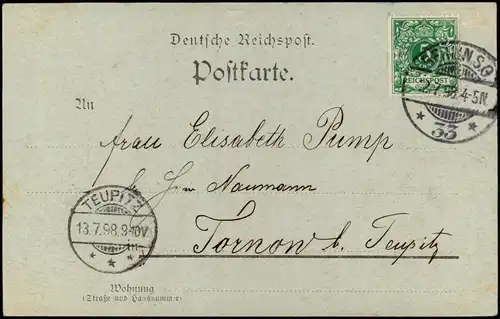 Deutsche Reichspost.
Postkarte.
REICHSPOST
BERLIN, S.O.
7.98. 4-5N.
* 33 *
An
Frau Elisabeth Pump
b/ Hrn Naumann
Tornow b. Teupitz
TEUPITZ
13.7.98. 9-10V.
* * *
Wohnung
(Straße und Hausnummer)